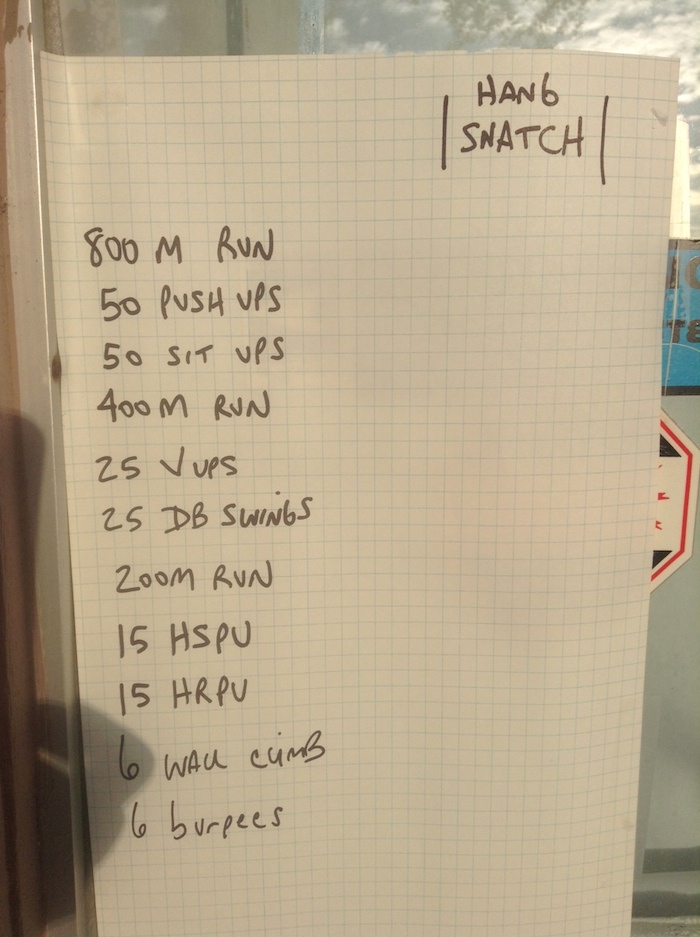 HANG
SNATCH
800 M RUN
50 PUSH UPS
50 SIT UPS
400 M RUN
25 V UPS
25 DB SWINGS
200M RUN
15 HSPU
15 HRPU
6 WALL CLIMB
6 burpees